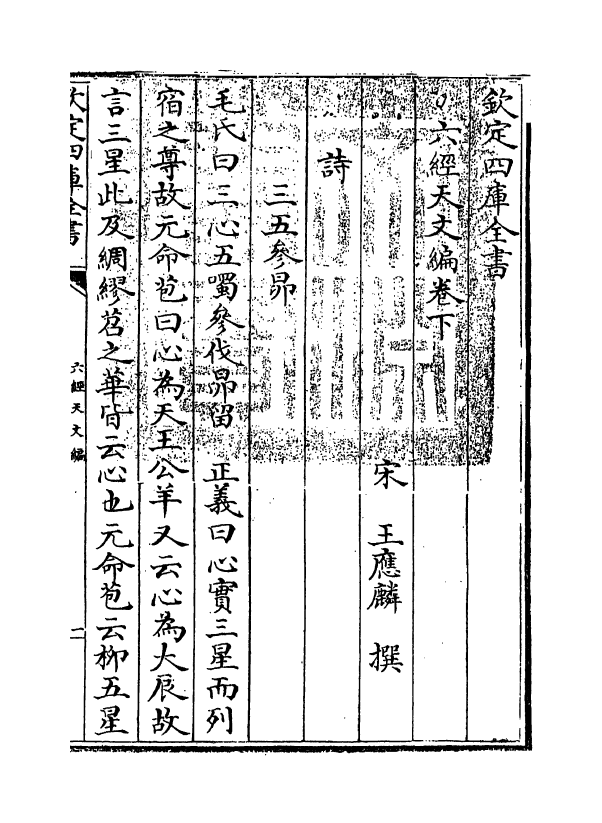 欽定四庫全書
六經天文編卷下
宋 王應麟 撰
詩
三五參昴
毛氏曰三心五噣參伐昴留 正義曰心實三星而列
宿之尊故元命苞曰心為天王公羊又云心為大辰故
言三星此及綢繆苕之華皆云心也元命苞云柳五星
欽定四庫全書
六經天文編
二